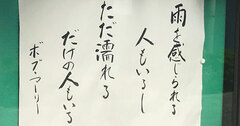 雨を感じられる
人もいるし
ただ濡れる
だけの人もいる
ボブ・マーリー